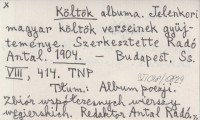 x
Költők albuma. Jelenkori
magyar költők verseinek gyűj-
teménye. Szerkesztette Radó
Antal. 1904. – Budapest, Ss.
VIII 414. TNP
Tłum.: Album poezji.
Zbiór współczesnych wierszy
węgierskich. Redaktor Antal Radó,